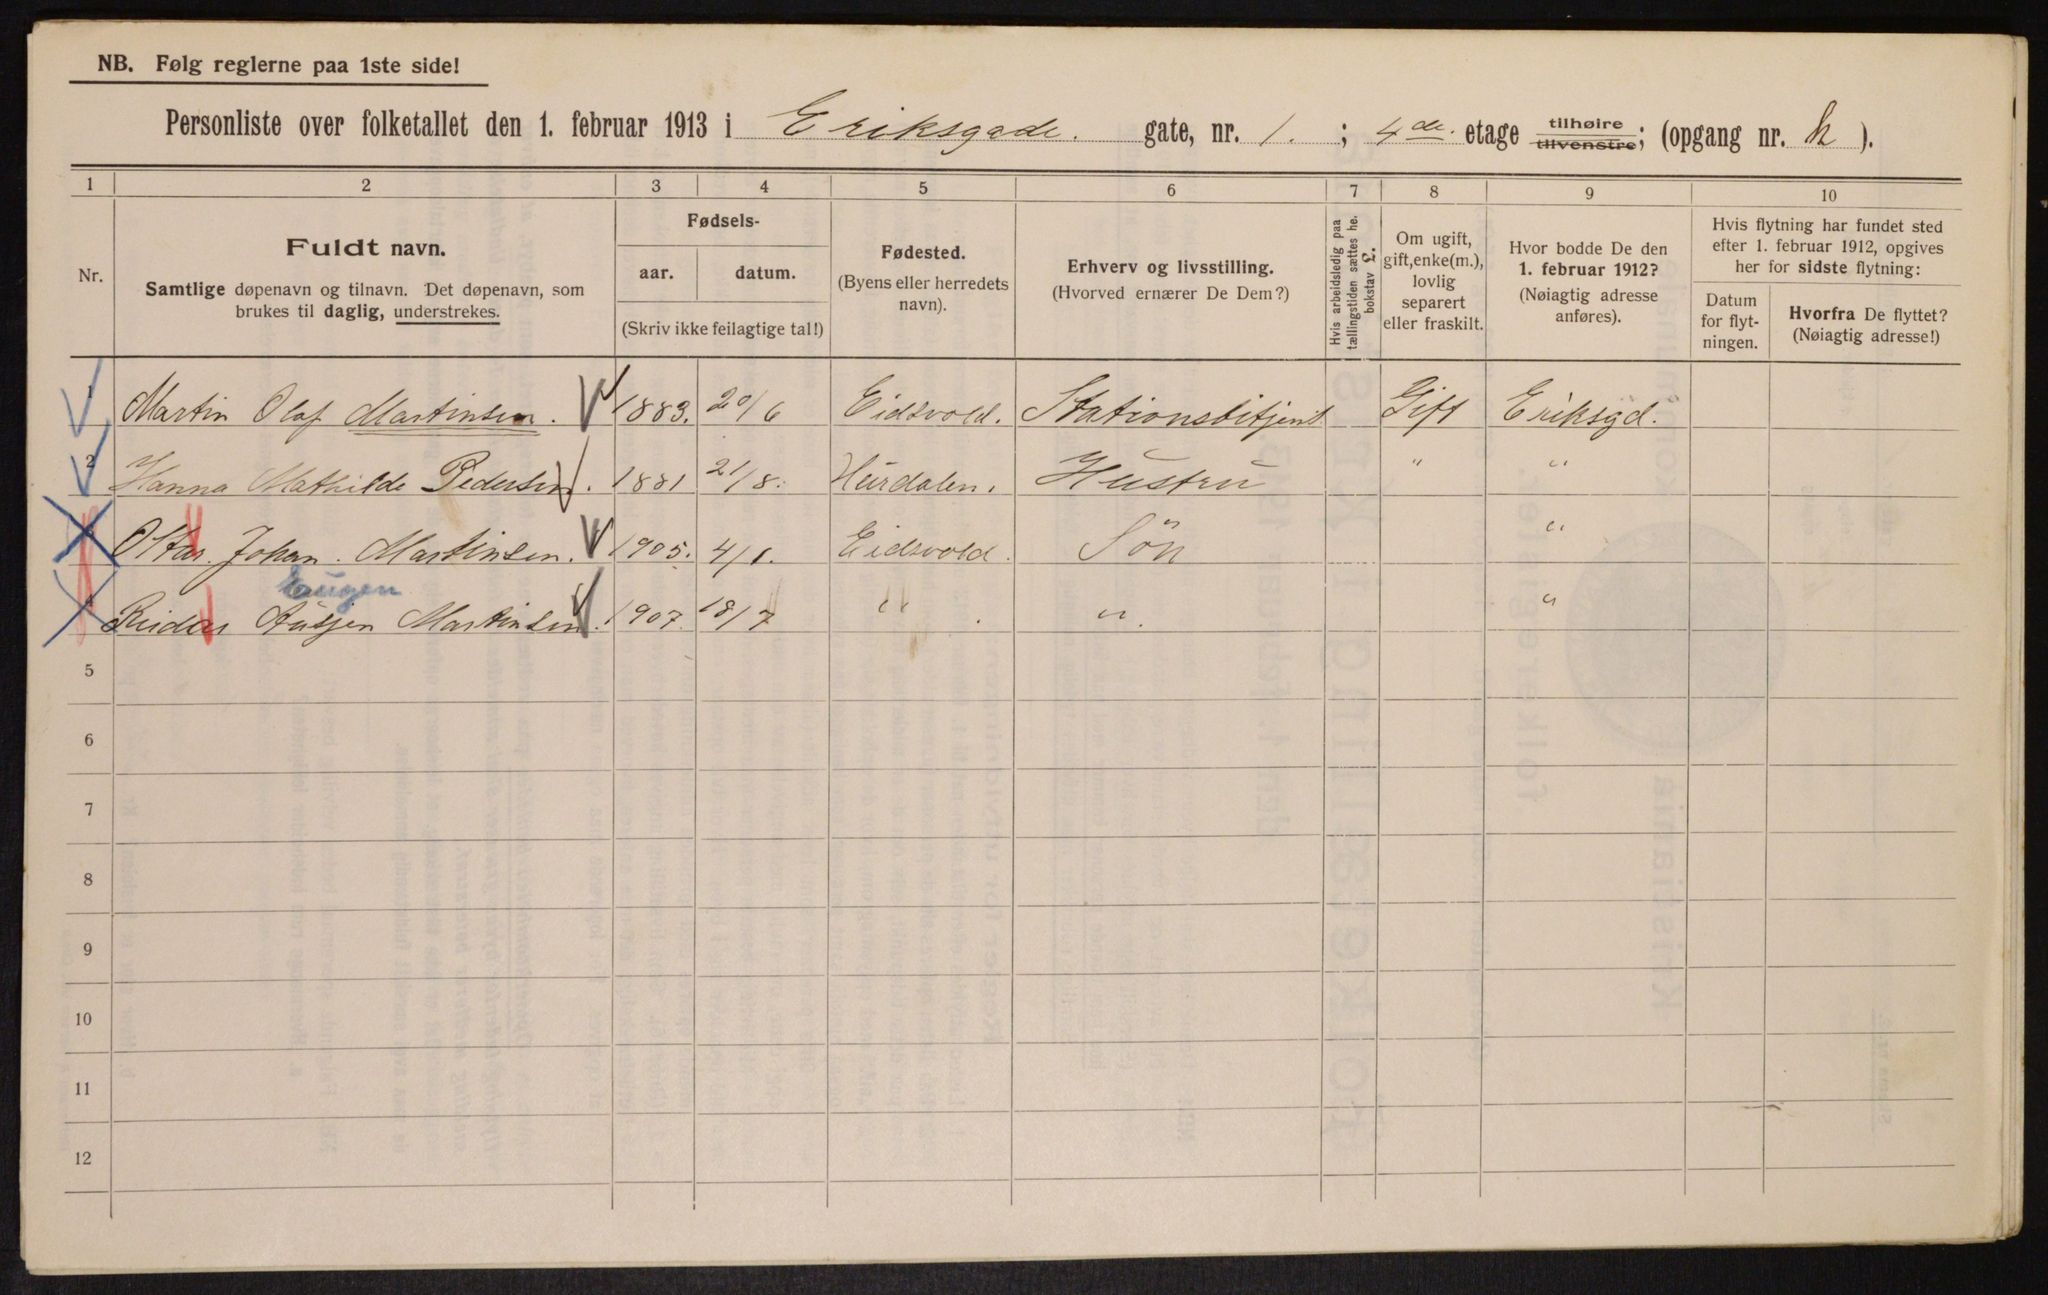 NB. Følg reglerne paa 1ste side!
Personliste over folketallet den 1. februar 1913 i Eriksgade. gate, nr. 1. ; 4de. etage tilhøire tilvenstre; (opgang nr. h ).
1 2 3 4 5 6 7 8 9 10
Nr.
Fuldt navn.
Samtlige døpenavn og tilnavn. Det døpenavn, som
brukes til daglig, understrekes.
Fødsels-
aar. datum.
(Skriv ikke feilagtige tal!)
Fødested.
(Byens eller herredets
navn).
Erhverv og livsstilling.
(Hvorved ernærer De Dem?)
Hvis arbeidsledig paa
tællingstiden sættes her
bokstav L.
Om ugift,
gift, enke(m.),
lovlig
separert
eller fraskilt.
Hvor bodde De den
1. februar 1912?
(Nøiagtig adresse
anføres).
Hvis flytning har fundet sted
efter 1. februar 1912, opgives
her for sidste flytning:
Datum
for flyt-
ningen.
Hvorfra De flyttet?
(Nøiagtig adresse!)
1 Martin Olaf Martinsen. 1883. 20/6 Eidsvold. Stationsbitjent Gift Eriksgd.
2 Hanna Mathilde Pedersen. 1881 21/8. Hurdalen. Hustru " "
3 Olav. Johan. Martinsen. 1905. 4/1. Eidsvold. Sön "
Eugen
4 Reidar Ausjen Martinsen. 1907. 18/7 " . ". "
5
6
7
8
9
10
11
12